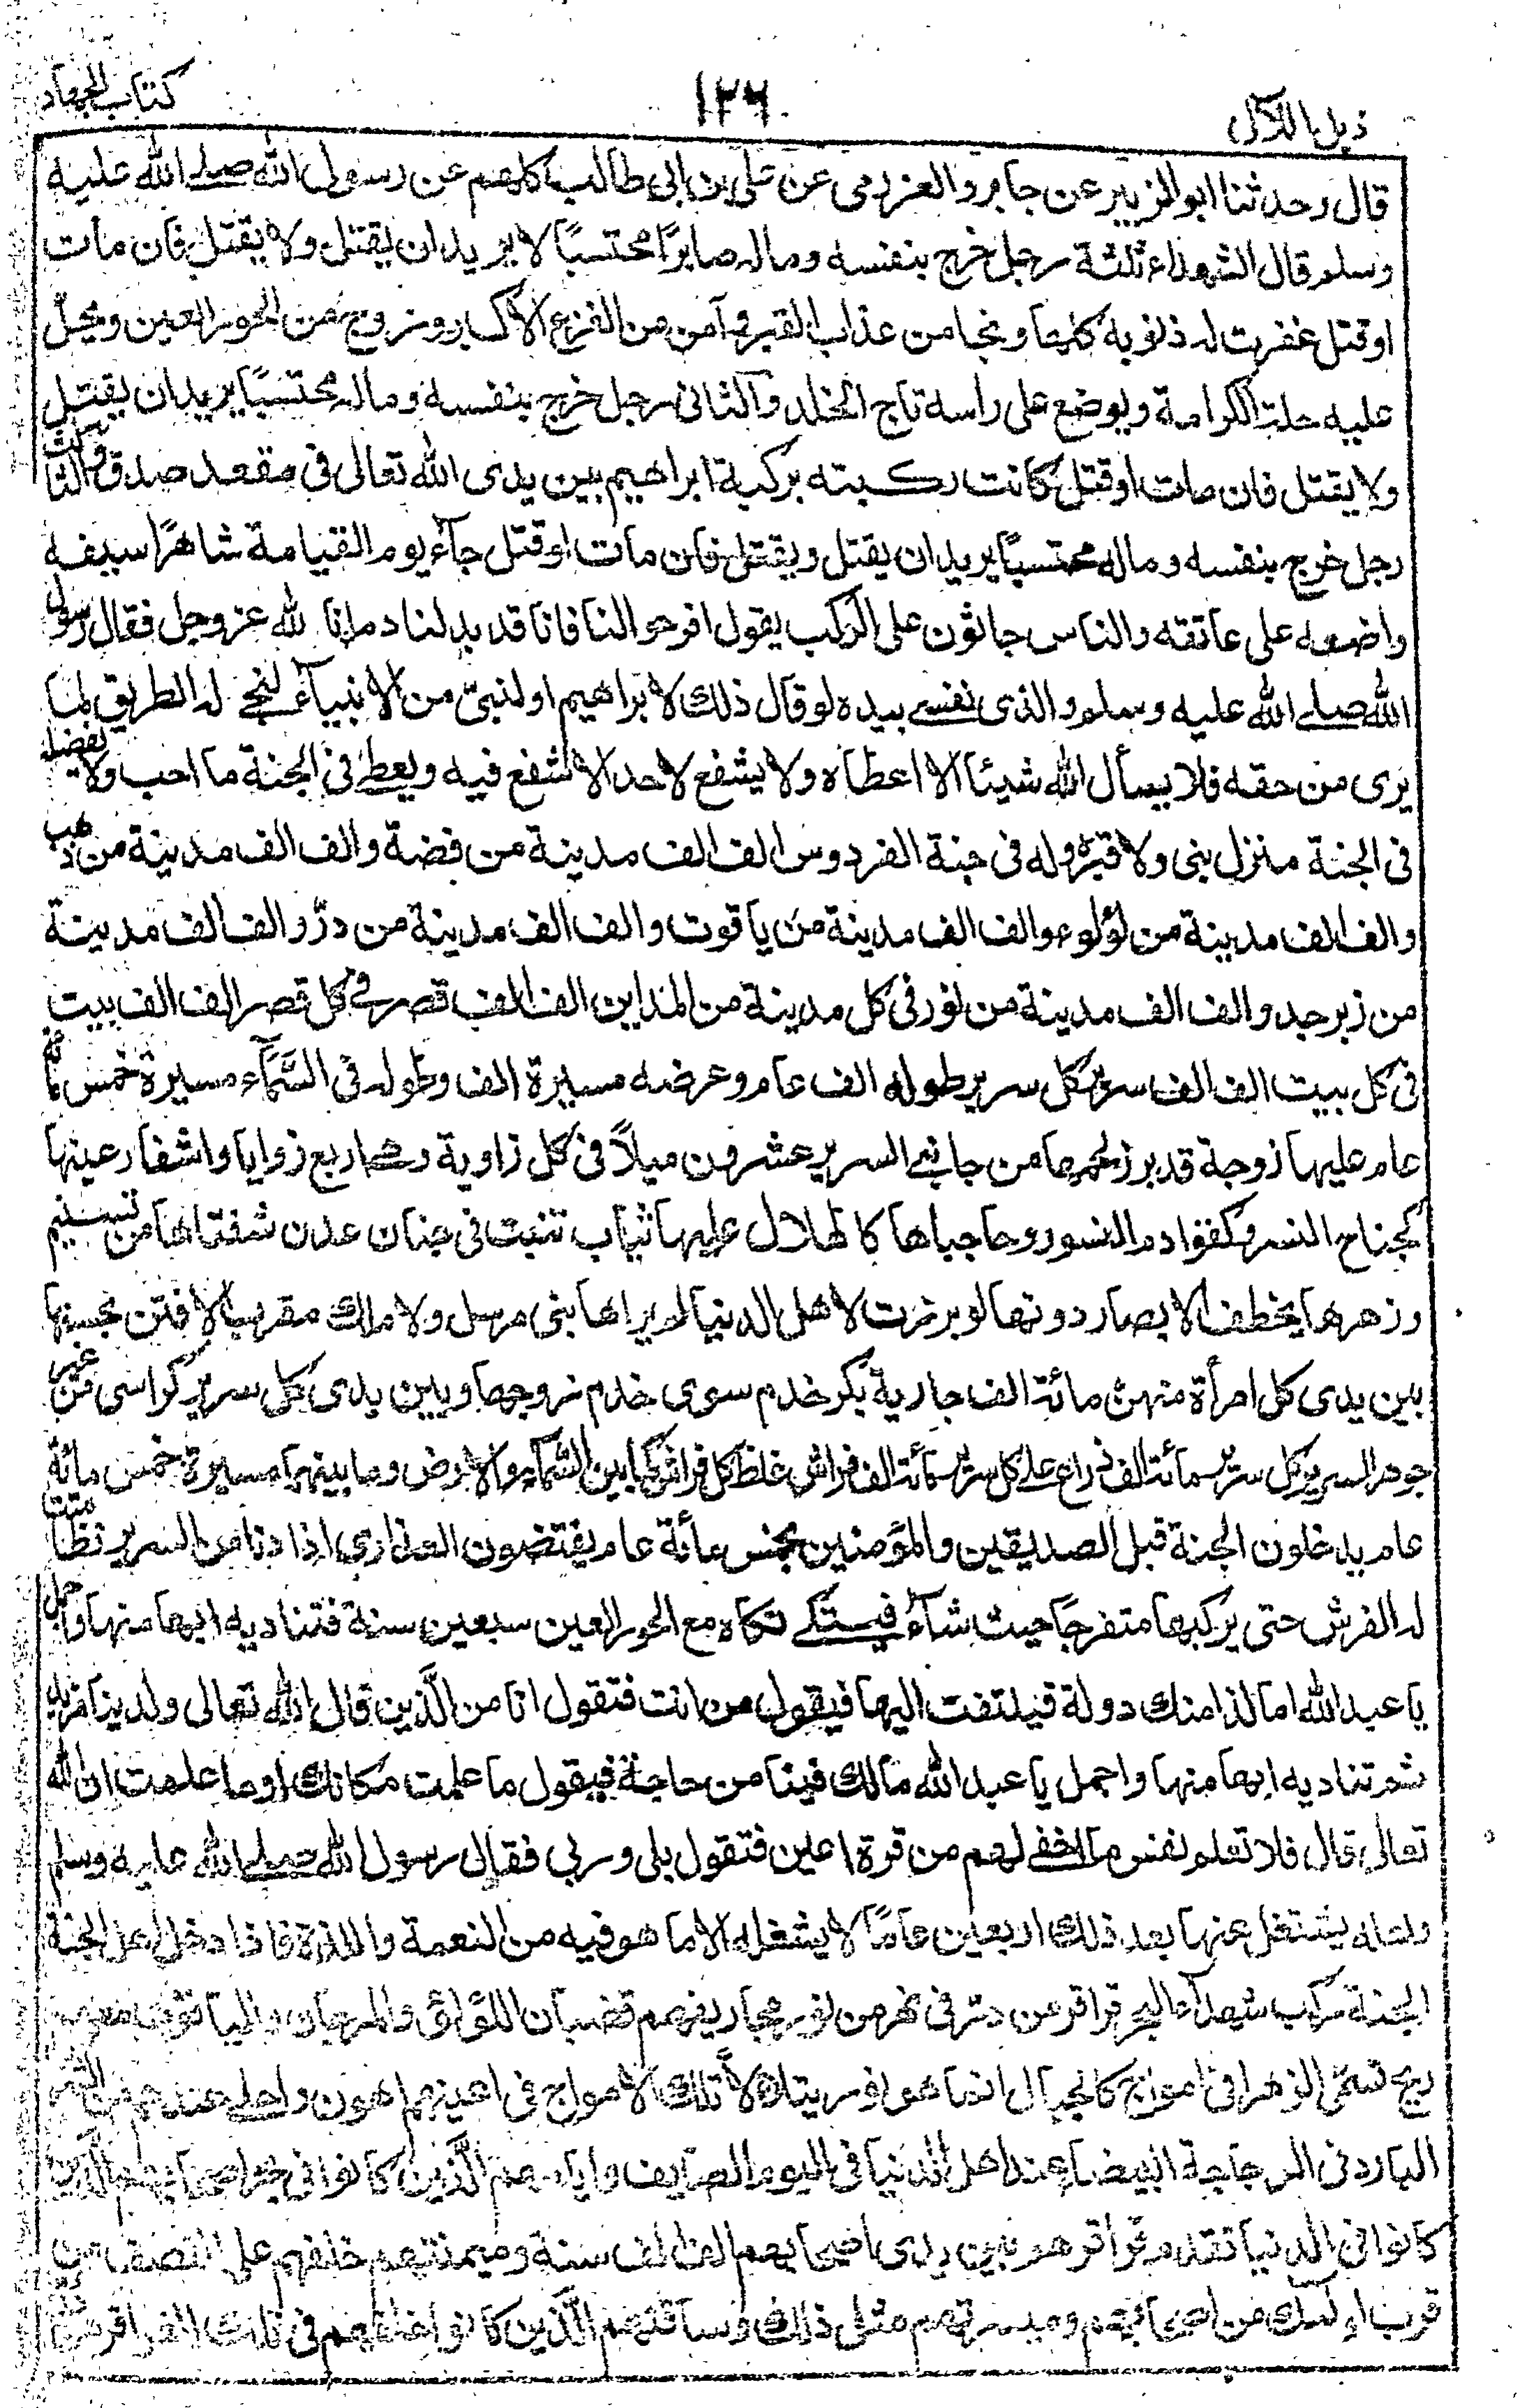 ذيل اللآلى
١٢٦
كتاب الجهاد
قال وحدثنا ابو الزبير عن جابر والعزرمى عن على بن ابى طالب كلهم عن رسول الله صلے الله عليه
وسلم قال الشهداء ثلثة رجل خرج بنفسه وماله صابرًا محتسبًا لا يريد ان يقتل ولا يقتل فان مات
او قتل غفرت له ذنوبه كلها ونجا من عذاب القبر وآمن من الفزع الاكبر وزوج من الحور العين ويحل
عليه حلة الكرامة ويوضع على راسه تاج الخلد والثانى رجل خرج بنفسه وماله محتسبًا يريد ان يقتل
ولا يقتل فان مات او قتل كانت ركبته بركبة ابراهيم بين يدى الله تعالى فى مقعد صدق والثالث
رجل خرج بنفسه وماله محتسبًا يريد ان يقتل ويقتل فان مات او قتل جاء يوم القيامة شاهرًا سيفه
واضعه على عاتقه والناس جاثون على الركب يقول افرحوا لنا فانا قد بدلنا دمانا لله عز وجل فقال رسول
الله صلے الله عليه وسلم والذى نفسے بيده لو قال ذلك لابراهيم او لنبىّ من الانبياء لنحے له الطريق لما
يرى من حقه فلا يسأل الله شيئا الا اعطاه ولا يشفع لاحد الا شفع فيه ويعطے فى الجنة ما احب ولا يفضله
فى الجنة منزل نبى ولا غيره وله فى جنة الفردوس الف الف مدينة من فضة والف الف مدينة من ذهب
والف الف مدينة من لؤلوء والف الف مدينة من ياقوت والف الف مدينة من درّ والف الف مدينة
من زبرجد والف الف مدينة من نور فى كل مدينة من المداين الف الف قصر فے كل قصر الف الف بيت
فى كل بيت الف الف سرير كل سرير طوله الف عام وعرضه مسيرة الف وطوله فى السَّمَاء مسيرة خمس مائة
عام عليها زوجة قد برز لحمها من جانبے السرير عشرون ميلاً فى كل زاوية وهے اربع زوايا واشفار عينها
كجناح النسر وكقوادم النسور وحاجباها كالهلال عليها ثياب تنبت فى جنان عدن شفتاها من تسنيم
وزهرها يخطف الابصار دونها لو برزت لاهل الدنيا لم يراها نبى مرسل ولا ملك مقرب الا فتن بحسنها
بين يدى كل امرأة منهن مائة الف جارية بكر خدم سوى خدم زوجها وبين يدى كل سرير كراسى من غير
جوهر السرير كل سرير مائة الف ذراع علے كل سرير مائة الف فراش غلظ كل فراش كما بين السماء والارض وما بينهما مسيرة خمس مائة
عام يدخلون الجنة قبل الصديقين والمؤمنين بخمس مائة عام يفتضون العذارى اذا دنا من السرير تطامنت
له الفرش حتى يركبها متفرجًا حيث شاء فيتكے تكاه مع الحور العين سبعين سنة فتناديه ابها منها واجمل
يا عبد الله اما لنا منك دولة فيلتفت اليها فيقول من انت فتقول انا من الَّذين قال الله تعالى ولدينا مزيد
ثم تناديه ابها منها واجمل يا عبد الله مالك فينا من حاجة فيقول ما علمت مكانك او ما علمت ان الله
تعالى قال فلا تعلم نفس ما اخفے لهم من قرة اعين فتقول بلى وربى فقال رسول الله صلے الله عليه وسلم
ولعله يشتغل عنها بعد ذلك اربعين عامًا لا يشغله الا ما هو فيه من النعمة واللذة فاذا دخل اهل الجنة
الجنة ركب شهداء البحر قراقر من در فى نهر من نور مجاريفهم قضبان اللؤلؤ والمرجان والياقوت معهم
ريح تسمّى الزهرا فى امواج كالجبال انما هو نور يتلالأ تلك الامواج فى اعينهم اهون واحلے عندهم من الشراب
البارد فى الزجاجة البيضاء عند اهل الدنيا فى اليوم الصايف وايامهم الَّذين كانوا فى نحر اصحابهم الَّذين
كانوا فى الدنيا تقدم قراقرهم بين يدى اصحابهم الف الف سنة وميمنتهم خلفهم على النصف من
قرب اولئك من اصحابهم وميسرتهم مثل ذلك وساقتهم الَّذين كانوا خلفهم فى تلك القراقر